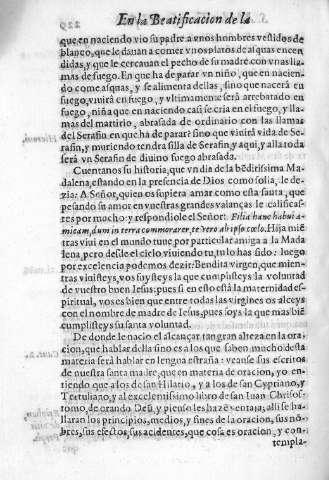 En la Beatificacion de la
que en naciendo vio su padre a vnos hombres vestidos de
blanco, que le dauan a comer vnos platos de asquas encen
didas, y que le cercauan el pecho de su madre con vnas lla-
mas de fuego. En que ha de parar vn niño, que en nacien-
do come asquas, y se alimenta dellas, sino que nacerá en
fuego, viuirá en fuego, y vltimamente será arrebatado en
fuego, niña que en naciendo casi se cria en el fuego, y lla-
mas del martirio, abrasada de ordinario con las llamas
del Serafin en que ha de parar? sino que viuirá vida de Se-
rafin, y muriendo tendra silla de Serafin, y aqui, y alla toda
será vn Serafin de diuino fuego abrasada.
Cuentanos su historia, que vn dia de la bēditissima Ma-
dalena, estando en la presencia de Dios como solia, le de-
zia: A Señor, quien os supiera amar como esta santa, que
pesando su amor en vuestras grandes valanças le calificas-
tes por mucho: y respondiole el Señor: Filia hanc habui a-
micam, dum in terra commorarer, te vero ab ipso cœlo. Hija miē
tras viui en el mundo tuue por particular amiga a la Mada
lena, pero desde el cielo viuiendo tu, tu lo has sido: luego
por excelencia podemos dezir: Bendita virgen, que mien-
tras viuisteys, vos fuysteys la que cumplisteys la voluntad
de vuestro buen Iesus: pues si en esto está la maternidad es-
piritual, vos es bien que entre todas las virgines os alceys
con el nombre de madre de Iesus, pues soys la que mas biē
cumplisteys su santa voluntad.
De donde le nacio el alcançar tan gran alteza en la ora-
cion, que hablar della sino es a los que saben mucho desta
materia será hablar en lengua estraña: veanse sus escritos
de nuestra santa madre, que en materia de oracion, yo en-
tiendo que a los de san Hilario, y a los de san Cypriano, y
Tertuliano, y al excelentissimo libro de san Iuan Chrisos-
tomo, de orando Deū, y pienso les haze ventaja, alli se ha-
llaran los principios, medios, y fines de la oracion, sus nō-
bres, sus efectos, sus acidentes, que cosa es oracion, y con-
templa-